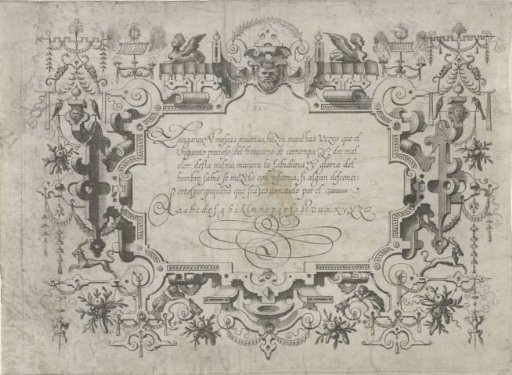 Y moscas muertas, hazen muchas Vezes que el
Unguento precioso del boticario se corrompa Y de mal
olor. desta misma manera la sabiduria, Y gloria del
hombre sabio se con infamia, si algun desconci
erto por pequeño que sea es cometido por el
A a a b c d e f g h i k l m n o p q r s